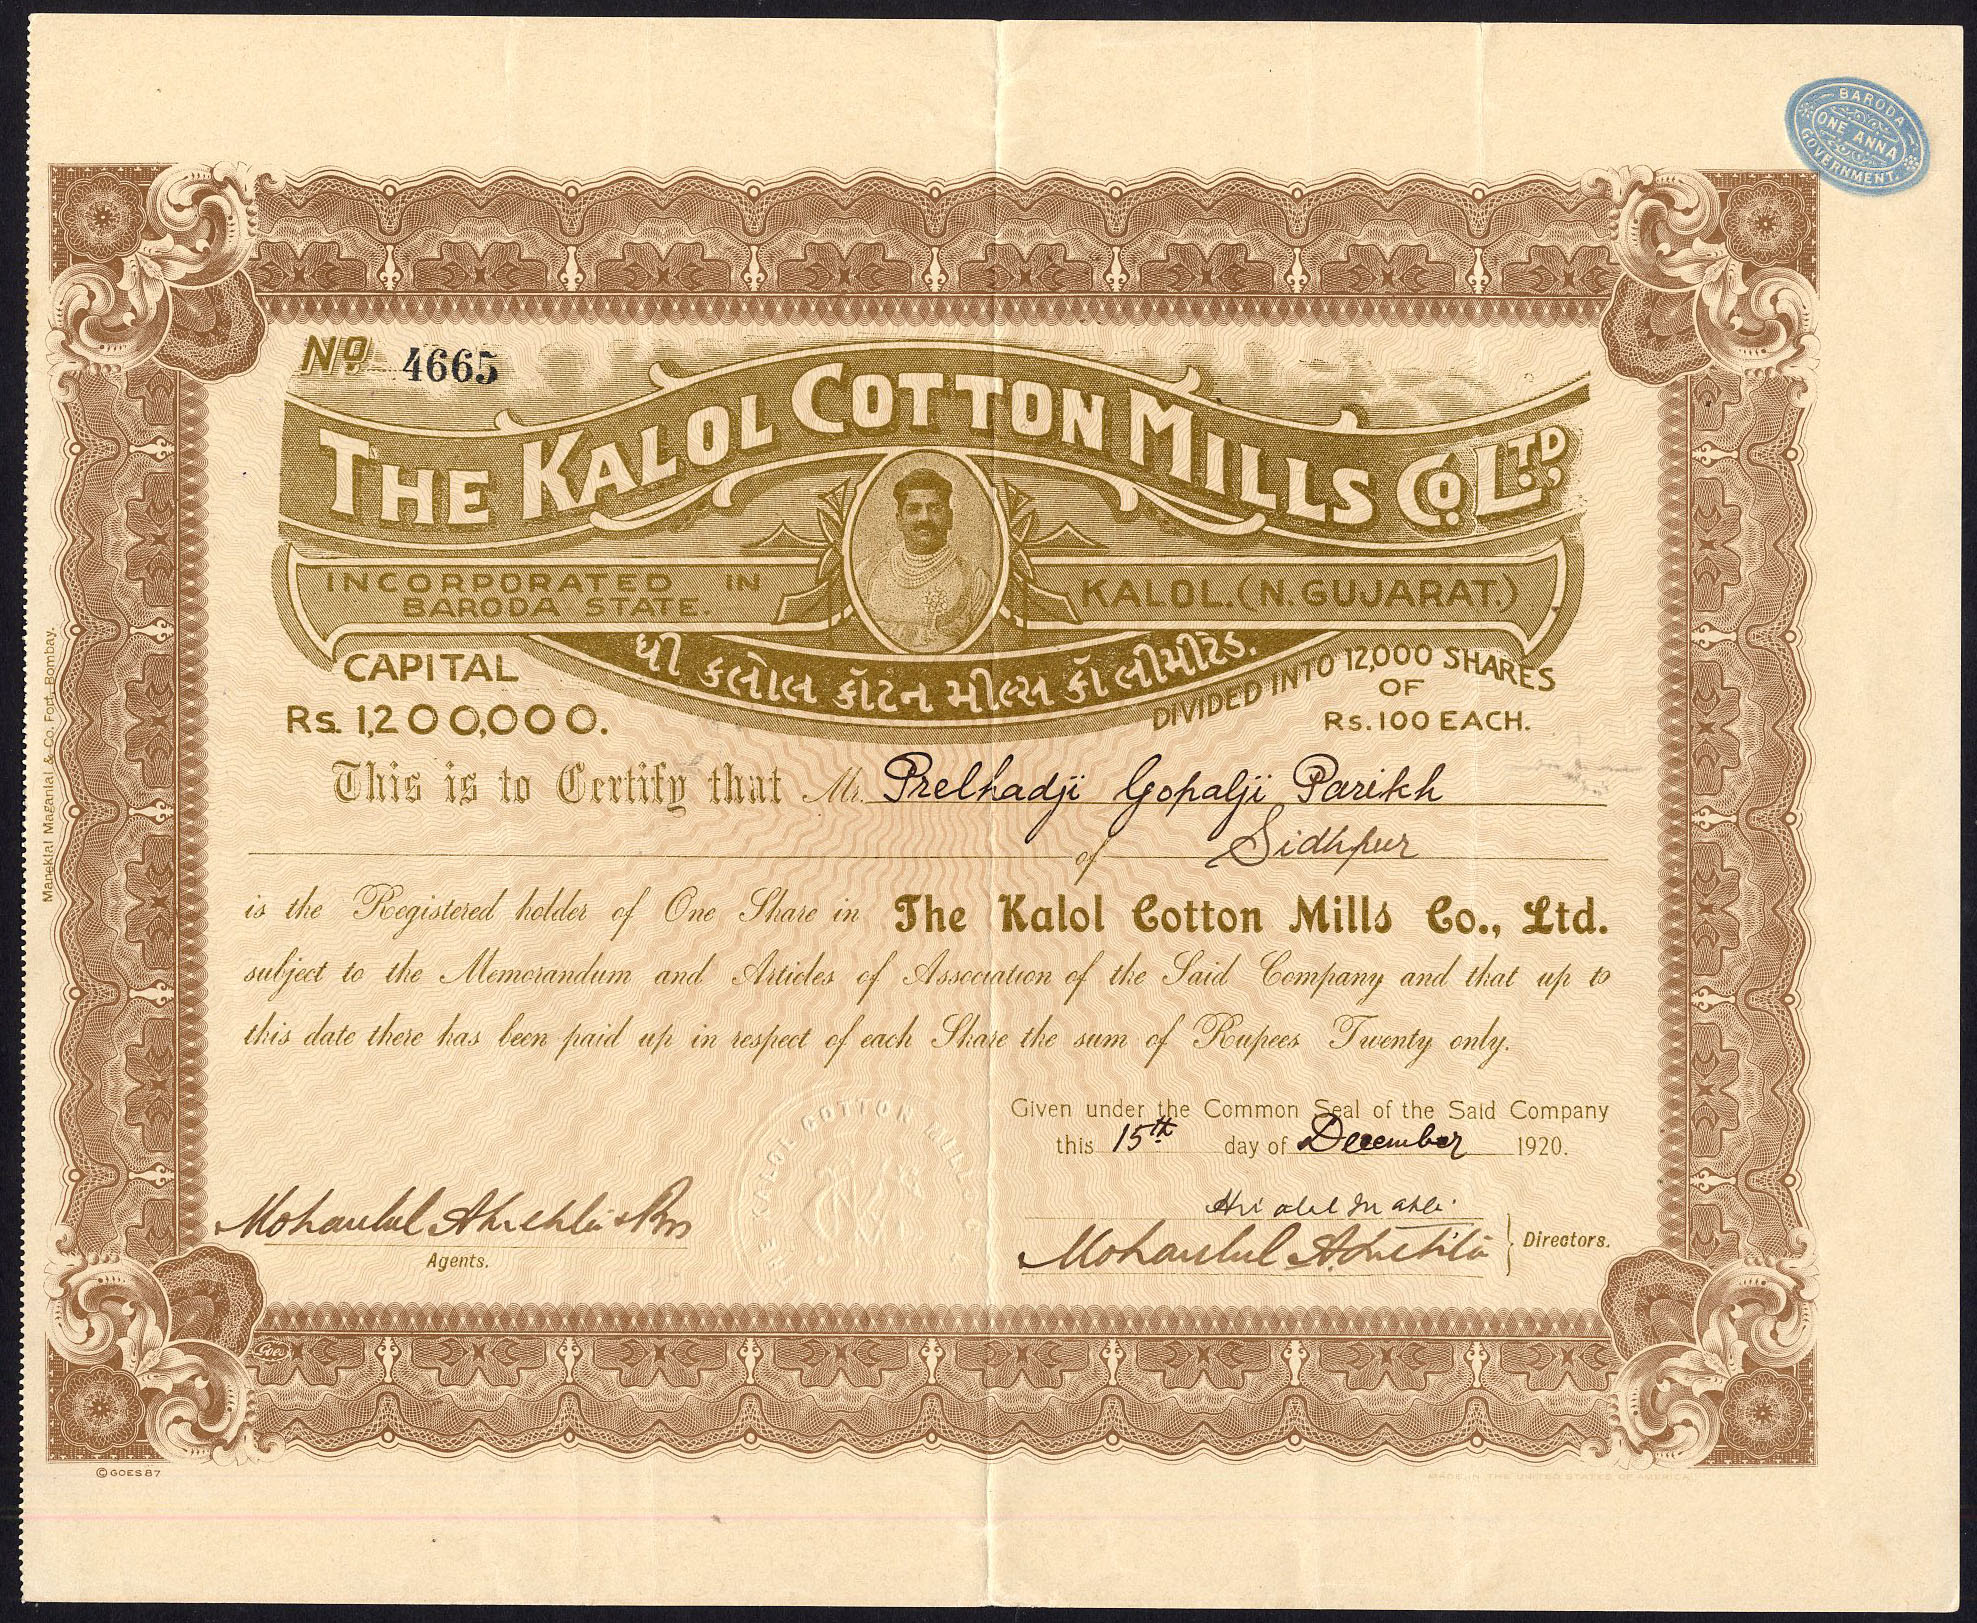 BARODA
ONE ANNA
GOVERNMENT.
No. 4665
THE KALOL COTTON MILLS CO. LTD,
INCORPORATED IN
BARODA STATE.
KALOL. (N. GUJARAT.)
ધી કલોલ કૉટન મીલ્સ કૉ લીમીટેડ.
CAPITAL
Rs. 1,200,000.
DIVIDED INTO 12,000 SHARES
OF
Rs. 100 EACH.
This is to Certify that Mr. Prelhadji Gopalji Parikh
of Sidhpur
is the Registered holder of One Share in The Kalol Cotton Mills Co., Ltd.
subject to the Memorandum and Articles of Association of the Said Company and that up to
this date there has been paid up in respect of each Share the sum of Rupees Twenty only.
THE KALOL COTTON MILLS
Given under the Common Seal of the Said Company
this 15th day of December 1920.
Agents.
Directors.
Maneklal Maganlal & Co. Fort, Bombay.
Goes
© GOES 87
MADE IN THE UNITED STATES OF AMERICA